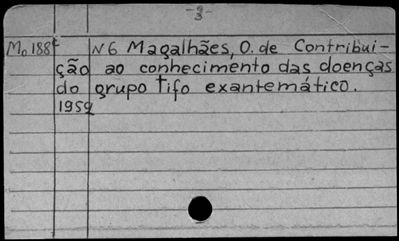 -9-
3
Mo 188ᶜ N6 Magalhães, O. de Contribui-
ção ao conhecimento das doenças
do grupo tifo exantemático.
1952